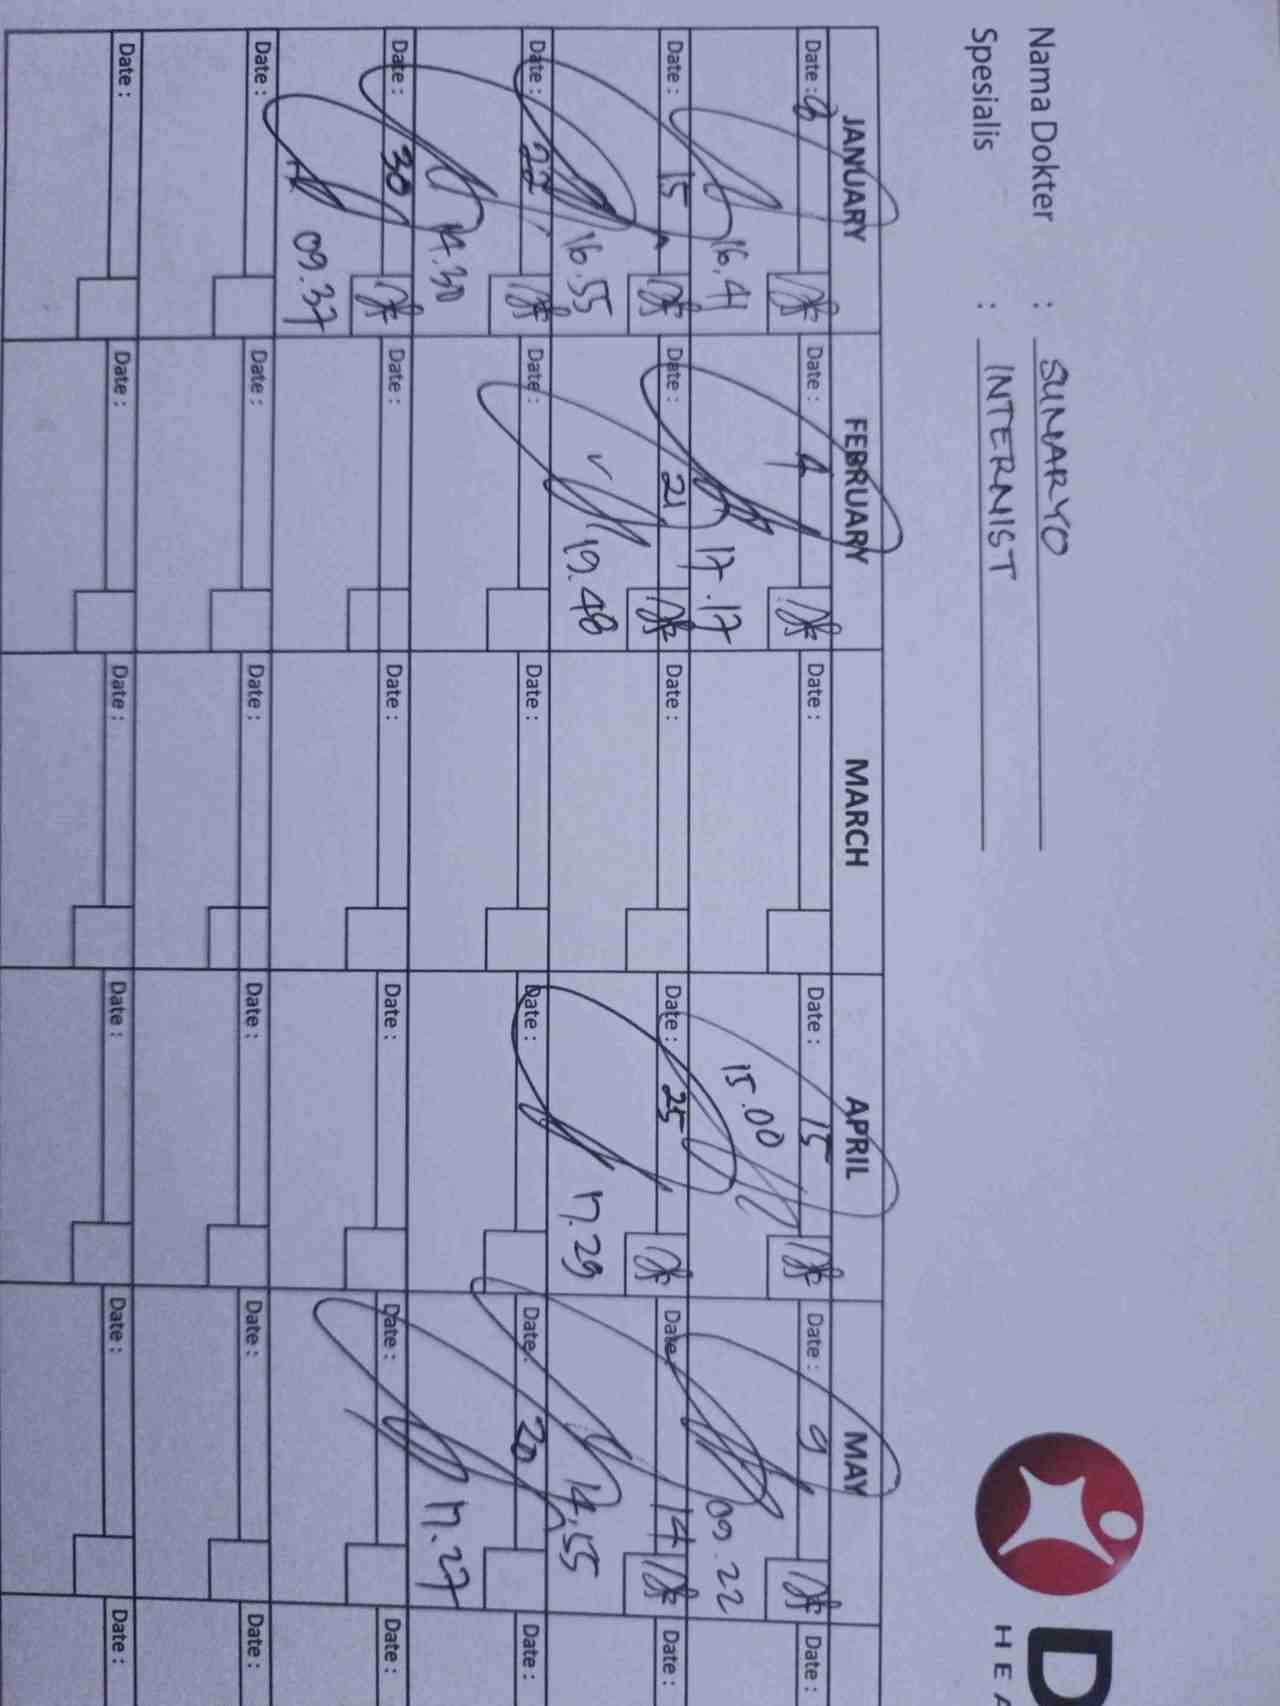 D
HEA
Nama Dokter : SUMARYO
Spesialis : INTERNIST
JANUARY FEBRUARY MARCH APRIL MAY
Date : 8 Date : 4 Date : Date : 15 Date : 9 Date :
16.41 17.17 15.00 09.22
Date : 15 Date : 21 Date : Date : 25 Date 14 Date :
16.55 19.48 17.29 14.55
Date : 22 Date : Date : Date : Date : 20 Date :
14.30 17.27
Date : 30 Date : Date : Date : Date : Date :
09.37
Date : Date : Date : Date : Date : Date :
Date : Date : Date : Date : Date : Date :